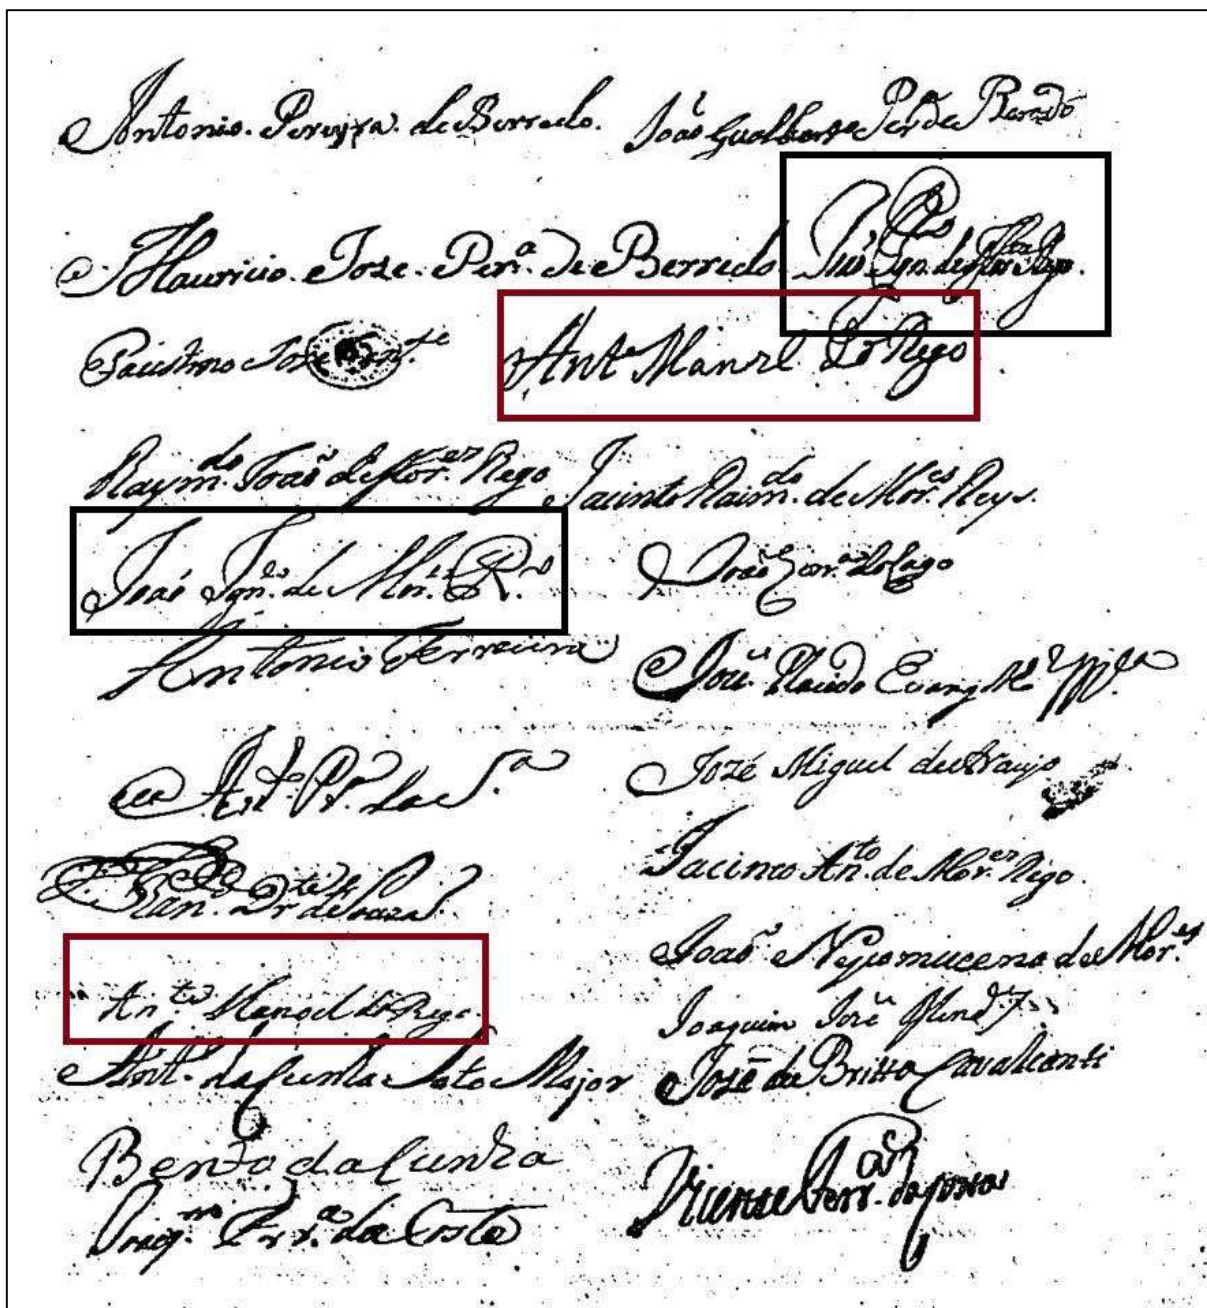 Antonio Pereyra de Berredo. João Gualberto Per.ª de Berredo
Mauricio Joze Per.ª de Berredo Luis Ign.co de Mor.es Rego
Faustino Joze
Ant.o Manoel do Rego
Raym.do João de Mor.es Rego Jacinto Raim.do de Mor.es Rego
José Ign.co de Mor.es R.o João do Lago
Antonio Ferreira José Placido Evang.
Ant.o P.r da S.ª José Miguel de Araujo
de Souza Jacinto An.to de Mor.es Rego
João Nepomuceno de Mor.es
An.to Manoel do Rego Joaquim José Mend.
Ant.o da Cunha Soto Major José de Britto Cavalcanti
Bento da Cunha
Joaq.m Frr.ª da Costa Vicente Ferr.ª da Costa